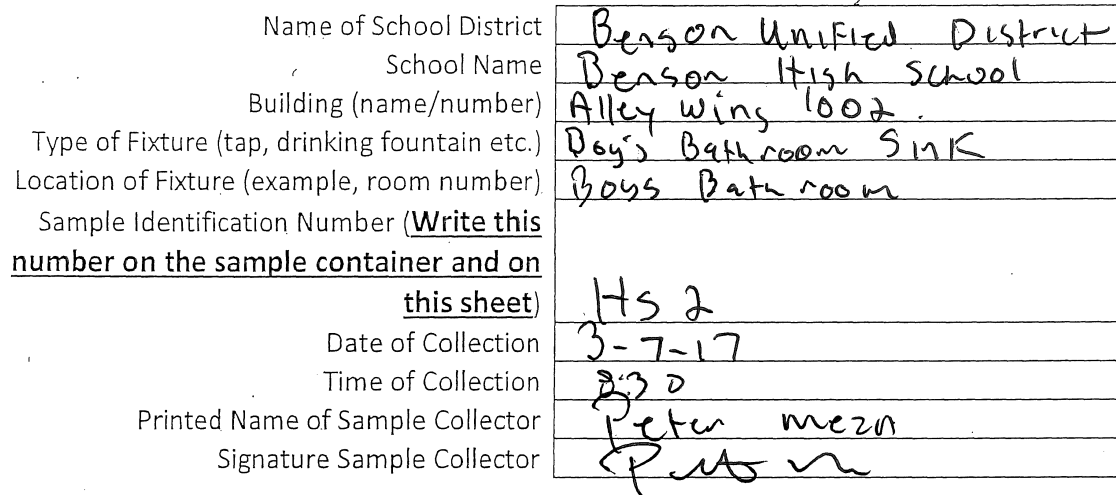 Name of School District Benson Unified District
School Name Benson High School
Building (name/number) Alley Wing 1002.
Type of Fixture (tap, drinking fountain etc.) Boy's Bathroom Sink
Location of Fixture (example, room number) Boys Bathroom
Sample Identification Number (Write this
number on the sample container and on
this sheet) HS 2
Date of Collection 3-7-17
Time of Collection 8:30
Printed Name of Sample Collector Peter
Signature Sample Collector